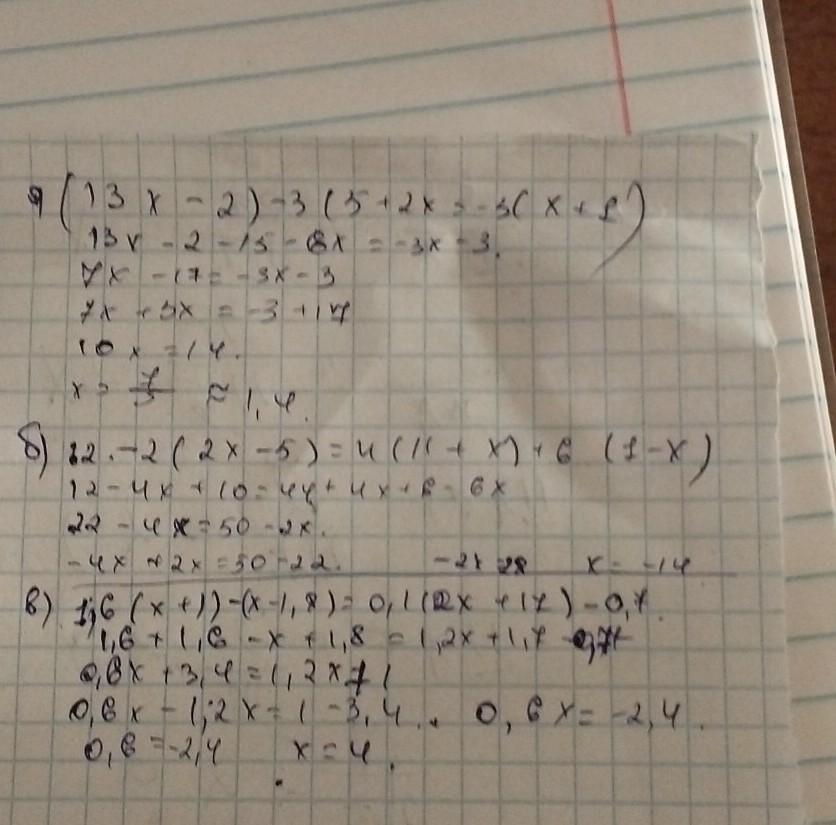 (13x - 2) - 3(5 + 2x = -3(x + 1)
13x - 2 - 15 - 6x = -3x - 3.
7x - 17 = -3x - 3
7x + 3x = -3 + 17
10x = 14.
x = 7/5 ≈ 1,4.
б) 12. -2(2x - 5) = 4(11 + x) + 6 (1 - x)
12 - 4x + 10 = 44 + 4x + 6 - 6x
22 - 4x = 50 - 2x.
-4x + 2x = 50 - 22. -2x 28 x = -14
в) 1,6(x + 1) - (x - 1,8) = 0,1(12x + 17) - 0,7.
1,6 + 1,6 - x + 1,8 = 1,2x + 1,7 - 0,7
0,6x + 3,4 = 1,2x + 1
0,6x - 1,2x = 1 - 3,4. 0,6x = -2,4.
0,6 = -2,4 x = 4.